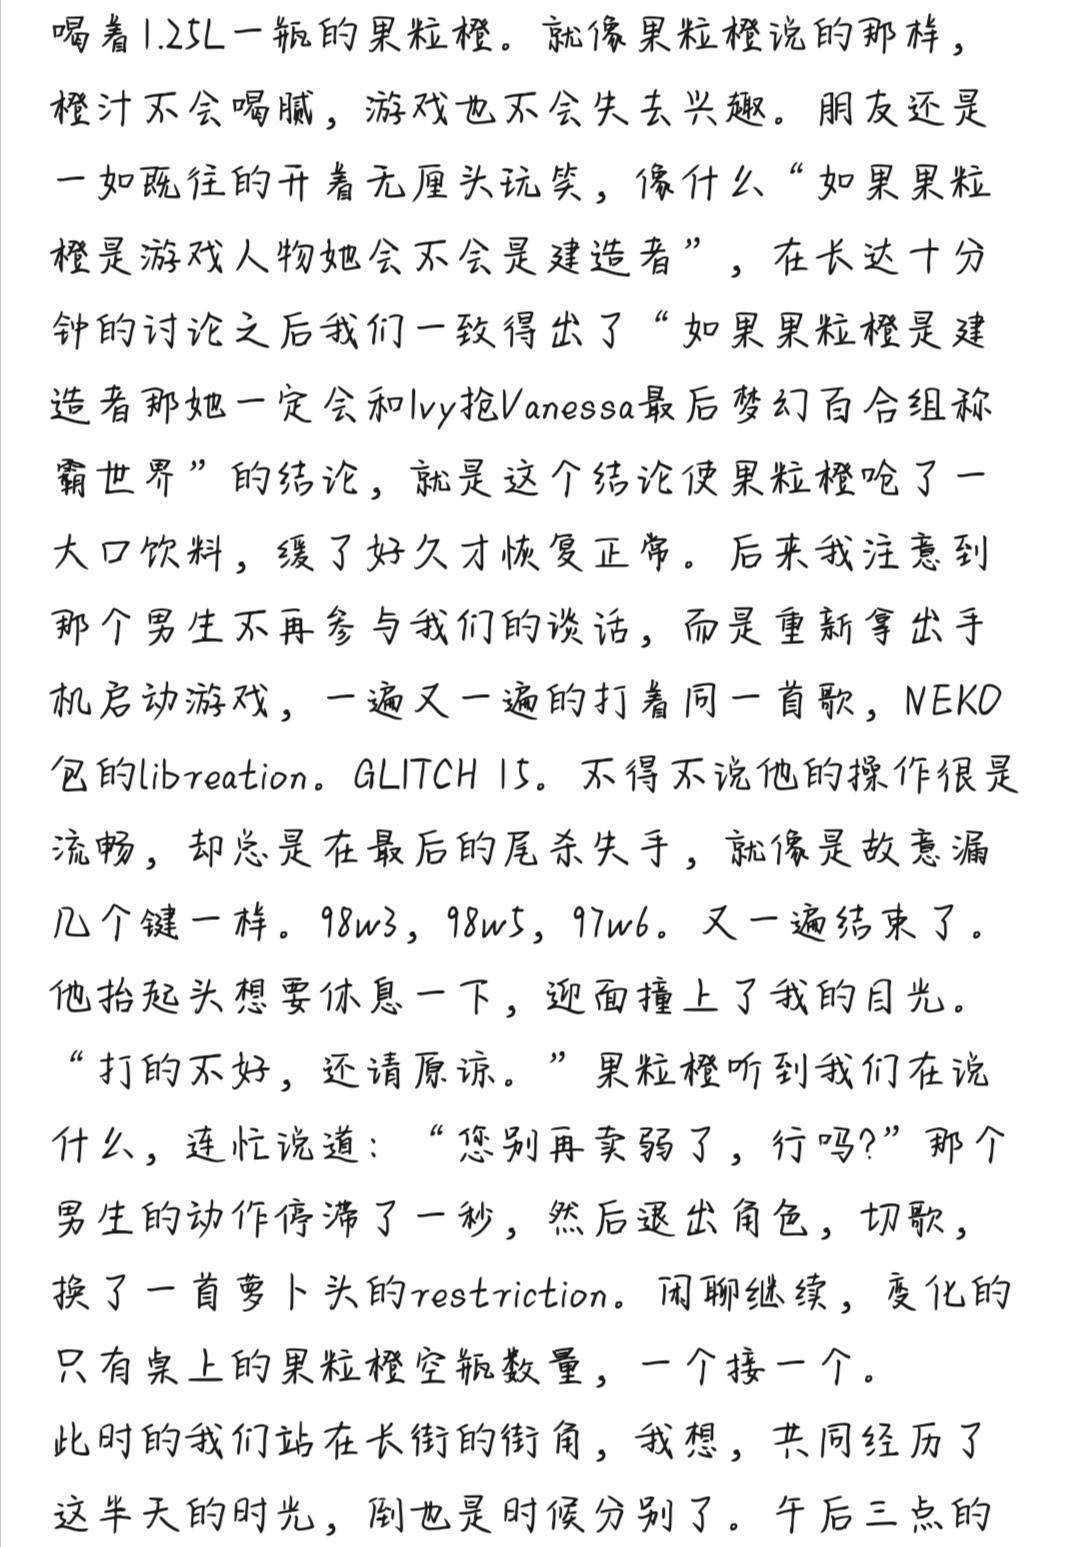 喝着1.25L一瓶的果粒橙。就像果粒橙说的那样，
橙汁不会喝腻，游戏也不会失去兴趣。朋友还是
一如既往的开着无厘头玩笑，像什么“如果果粒
橙是游戏人物她会不会是建造者”，在长达十分
钟的讨论之后我们一致得出了“如果果粒橙是建
造者那她一定会和Ivy抢Vanessa最后梦幻百合组称
霸世界”的结论，就是这个结论使果粒橙呛了一
大口饮料，缓了好久才恢复正常。后来我注意到
那个男生不再参与我们的谈话，而是重新拿出手
机启动游戏，一遍又一遍的打着同一首歌，NEKO
包的libreation。GLITCH 15。不得不说他的操作很是
流畅，却总是在最后的尾杀失手，就像是故意漏
几个键一样。98w3，98w5，97w6。又一遍结束了。
他抬起头想要休息一下，迎面撞上了我的目光。
“打的不好，还请原谅。”果粒橙听到我们在说
什么，连忙说道：“您别再卖弱了，行吗?”那个
男生的动作停滞了一秒，然后退出角色，切歌，
换了一首萝卜头的restriction。闲聊继续，变化的
只有桌上的果粒橙空瓶数量，一个接一个。
此时的我们站在长街的街角，我想，共同经历了
这半天的时光，倒也是时候分别了。午后三点的